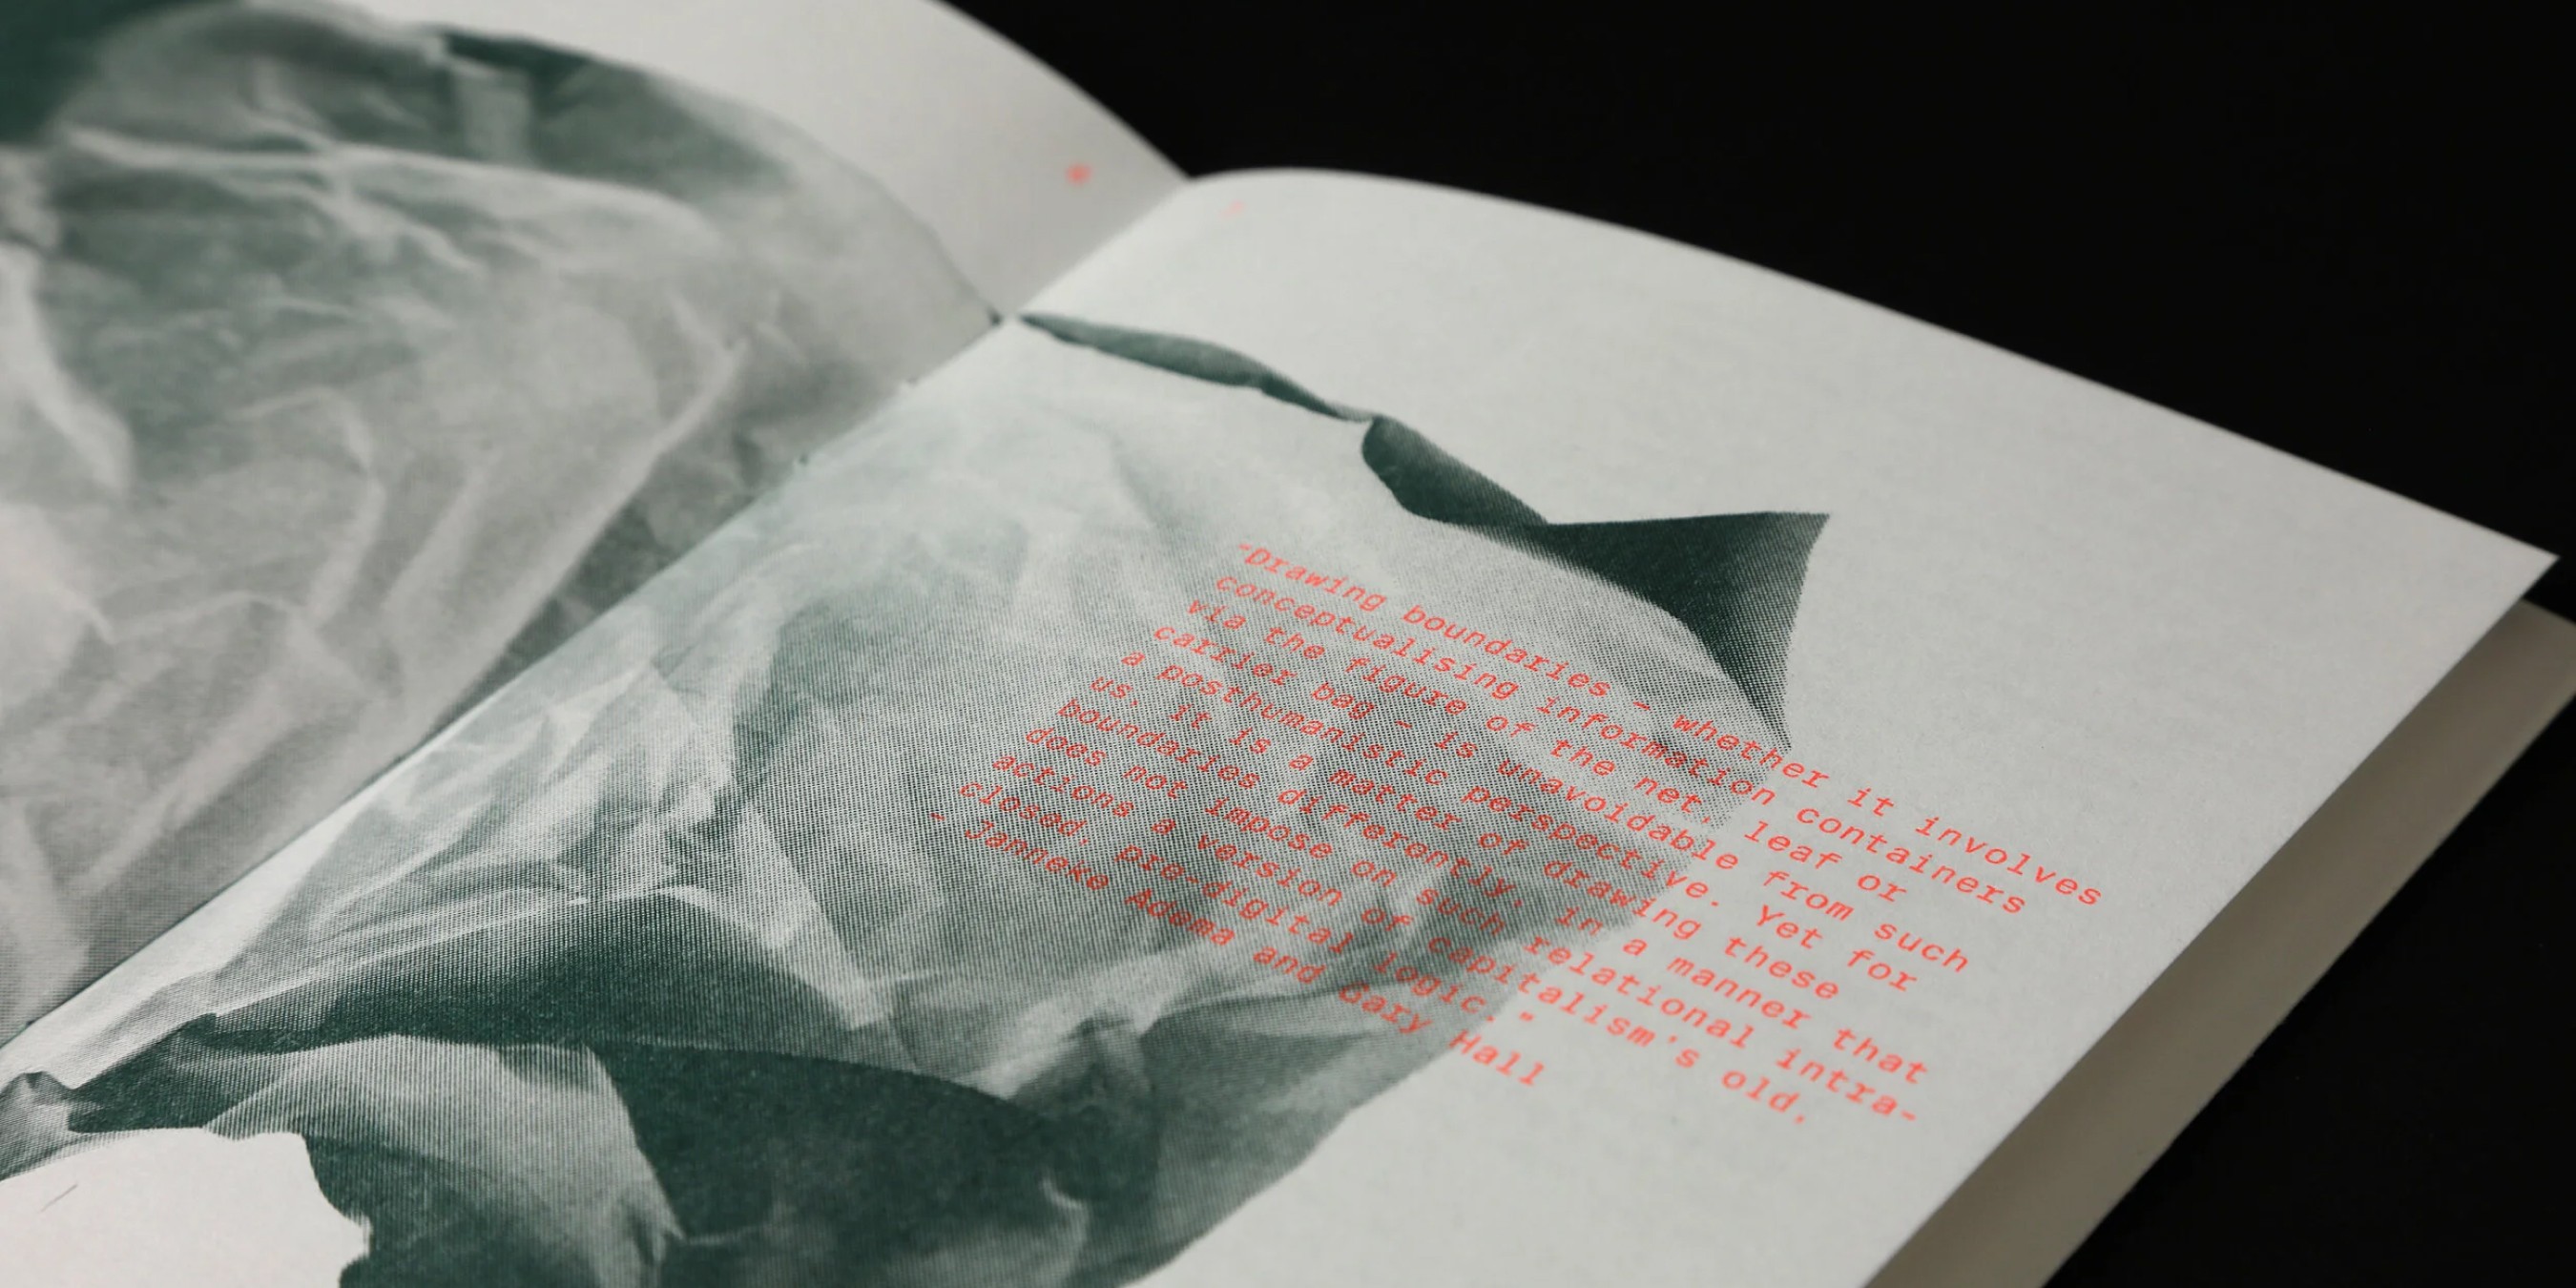 "Drawing boundaries – whether it involves
conceptualising information containers
via the figure of the net, leaf or
carrier bag – is unavoidable from such
a posthumanistic perspective. Yet for
us, it is a matter of drawing these
boundaries differently, in a manner that
does not impose on such relational intra-
actions a version of capitalism's old,
closed, pre-digital logic."
- Janneke Adema and Gary Hall